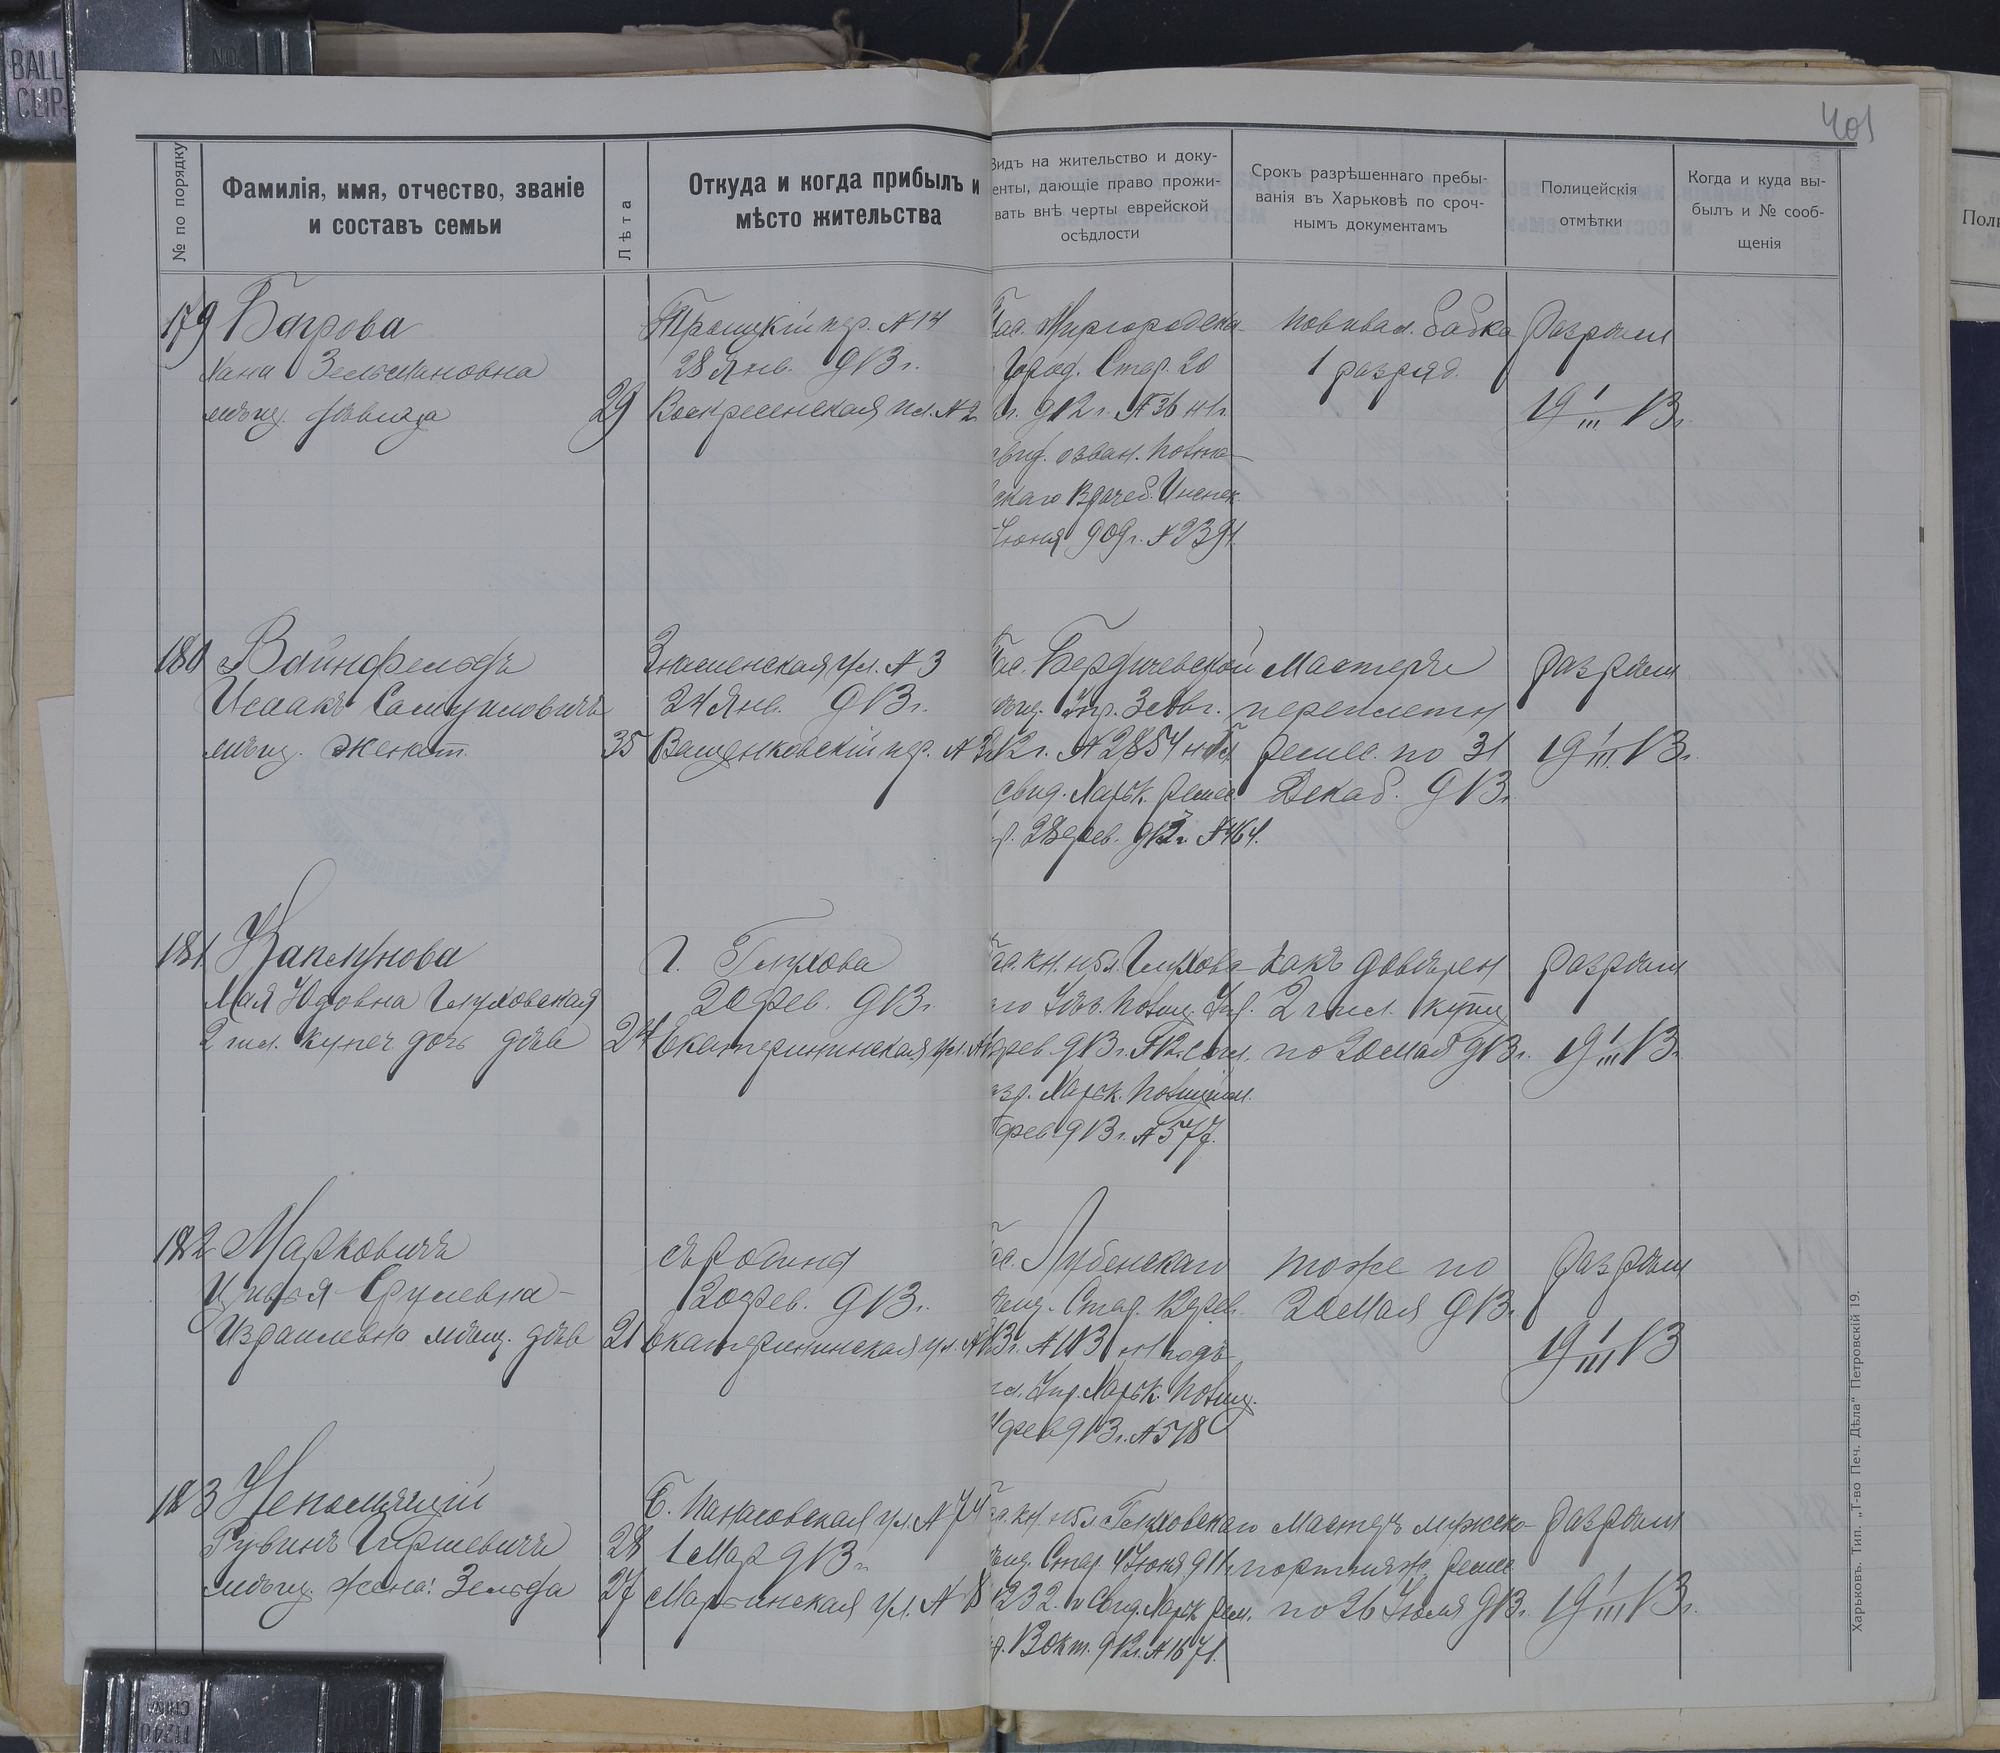 BALL
CLIP
NO.
401
№ по порядку
Фамилія, имя, отчество, званіе
и составъ семьи
Лѣта
Откуда и когда прибылъ и
мѣсто жительства
Видъ на жительство и доку-
енты, дающіе право прожи-
вать внѣ черты еврейской
осѣдлости
Срокъ разрѣшеннаго пребы-
ванія въ Харьковѣ по сроч-
нымъ документамъ
Полицейскія
отмѣтки
Когда и куда вы-
былъ и № сооб-
щенія
Поли
179 Багрова
Хана Зельмановна
мѣщ. дѣвица
29
Троицкій пер. №14
28 Янв. 913 г.
Воскресенская пл. №2
Пас. Миргородска
Город. Стар. 20
912 г. №36 на 1 г.
свид. о зван. повив
скаго Врачеб. Инспек.
Іюня 909 г. №2391.
повивал. бабка
1 разряд.
разрѣш
19 1/III 13 г.
180 Вайнфельдъ
Исаакъ Самуиловичъ
мѣщ. женат.
35
Знаменская ул. №3
24 Янв. 913 г.
Ващенковскій пер. №
Пас. Бердичевской
мѣщ. Упр. 3 Авг.
12 г. №2854
свид. Харьк. Ремес.
28 фев. 912 г. №464.
Мастеръ
переплетн
ремес. по 31
Декаб. 913 г.
разрѣш
19 1/III 13 г.
181 Каплунова
Мая Юдовна Глуховская
2 гил. купеч. дочь дѣв
24
г. Глухова
20 фев. 913 г.
Екатерининская ул. №
Пас. кн. на 5 л. Глухов
го Уѣз. Полиц. Упр. 2
фев. 913 г. №12. согл.
азр. Харьк. Полицмей.
фев 913 г. №577.
какъ довѣрен
2 гил. купц
по 20 Мая 913 г.
разрѣш
19 1/III 13 г.
182 Марковичъ
Цивья Срулевна-
Израилевна мѣщ. дѣв
21
съ родины
20 фев. 913 г.
Екатерининская ул. №
Пас. Лубенскаго
мѣщ. Стар. 12 фев.
13 г. №113 на 1 годъ
гл. Упр. Харьк. Полиц.
фев 913 г. №578
тоже по
20 Мая 913 г.
разрѣш
19 1/III 13
183 Непомнящій
Рувинъ Гиршевичъ
мѣщ. жена: Зельда
28
27
Б. Панасовская ул. №74
1 Мар 913 г.
Марьинская ул. №18
Пас. кн. на 5 л. Глуховскаго
мѣщ. Стар. 4 Іюня 911 г.
№232. и Свид. Харьк. Рем.
13 окт. 912 г. №1671.
Мастеръ мужско-
портняж. ремес.
по 26 Іюля 913 г.
разрѣш
19 1/III 13 г.
Харьковъ. Тип. „Т-во Печ. Дѣла" Петровскій 19.